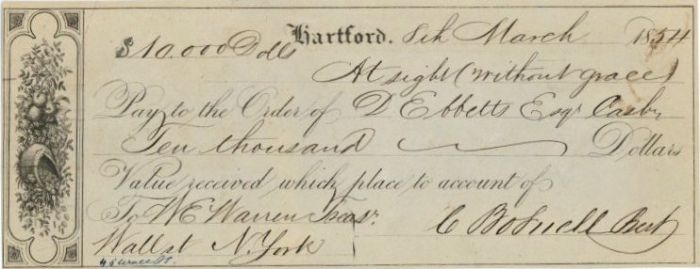 Hartford. 8th March 1854
$10.000 Dolls
At sight (without grace)
Pay to the Order of D Ebbetts Esqr Cashr
Ten thousand Dollars
Value received which place to account of
To W E Warren Treasr.
C Boswell Prest
Wall st N. York